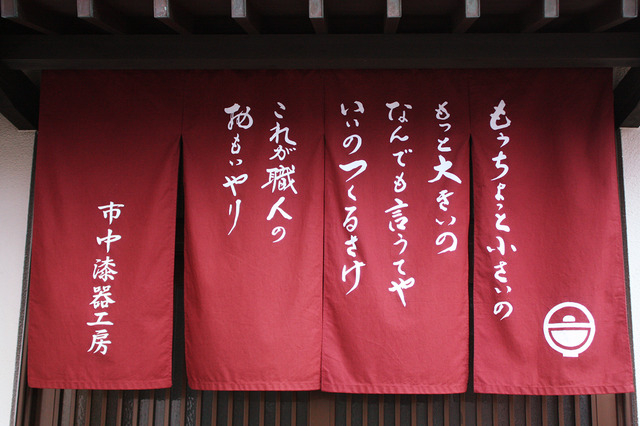 もうちょっと小さいの
もっと大きいの
なんでも言うてや
いいのつくるさけ
これが職人の
おもいやり
市中漆器工房